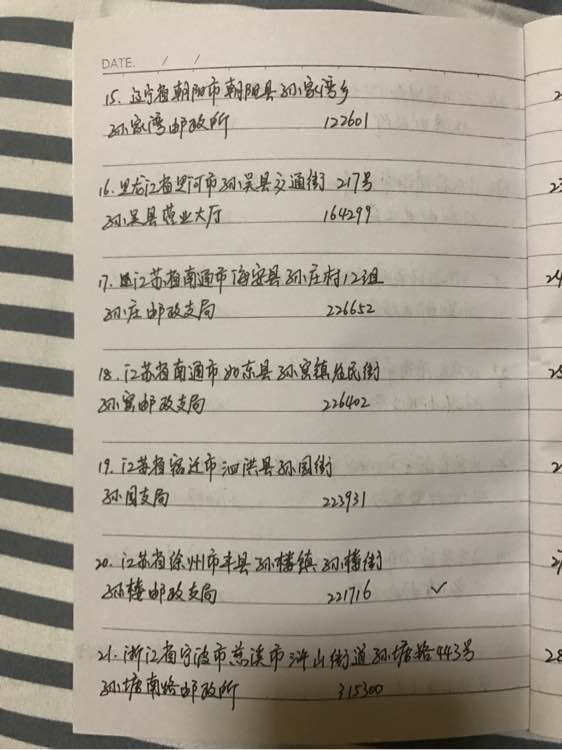 DATE. / /
15. 辽宁省朝阳市朝阳县孙家湾乡
孙家湾邮政所 122601
16. 黑龙江省黑河市孙吴县交通街 217号
孙吴县营业大厅 164299
17. 江苏省南通市海安县孙庄村12组
孙庄邮政支局 226652
18. 江苏省南通市如东县孙窑镇居民街
孙窑邮政支局 226402
19. 江苏省宿迁市泗洪县孙园街
孙园支局 223931
20. 江苏省徐州市丰县孙楼镇孙楼街
孙楼邮政支局 221716 ✓
21. 浙江省宁波市慈溪市浒山街道孙塘路443号
孙塘南路邮政所 315300
2
23
24
25
2
27
28